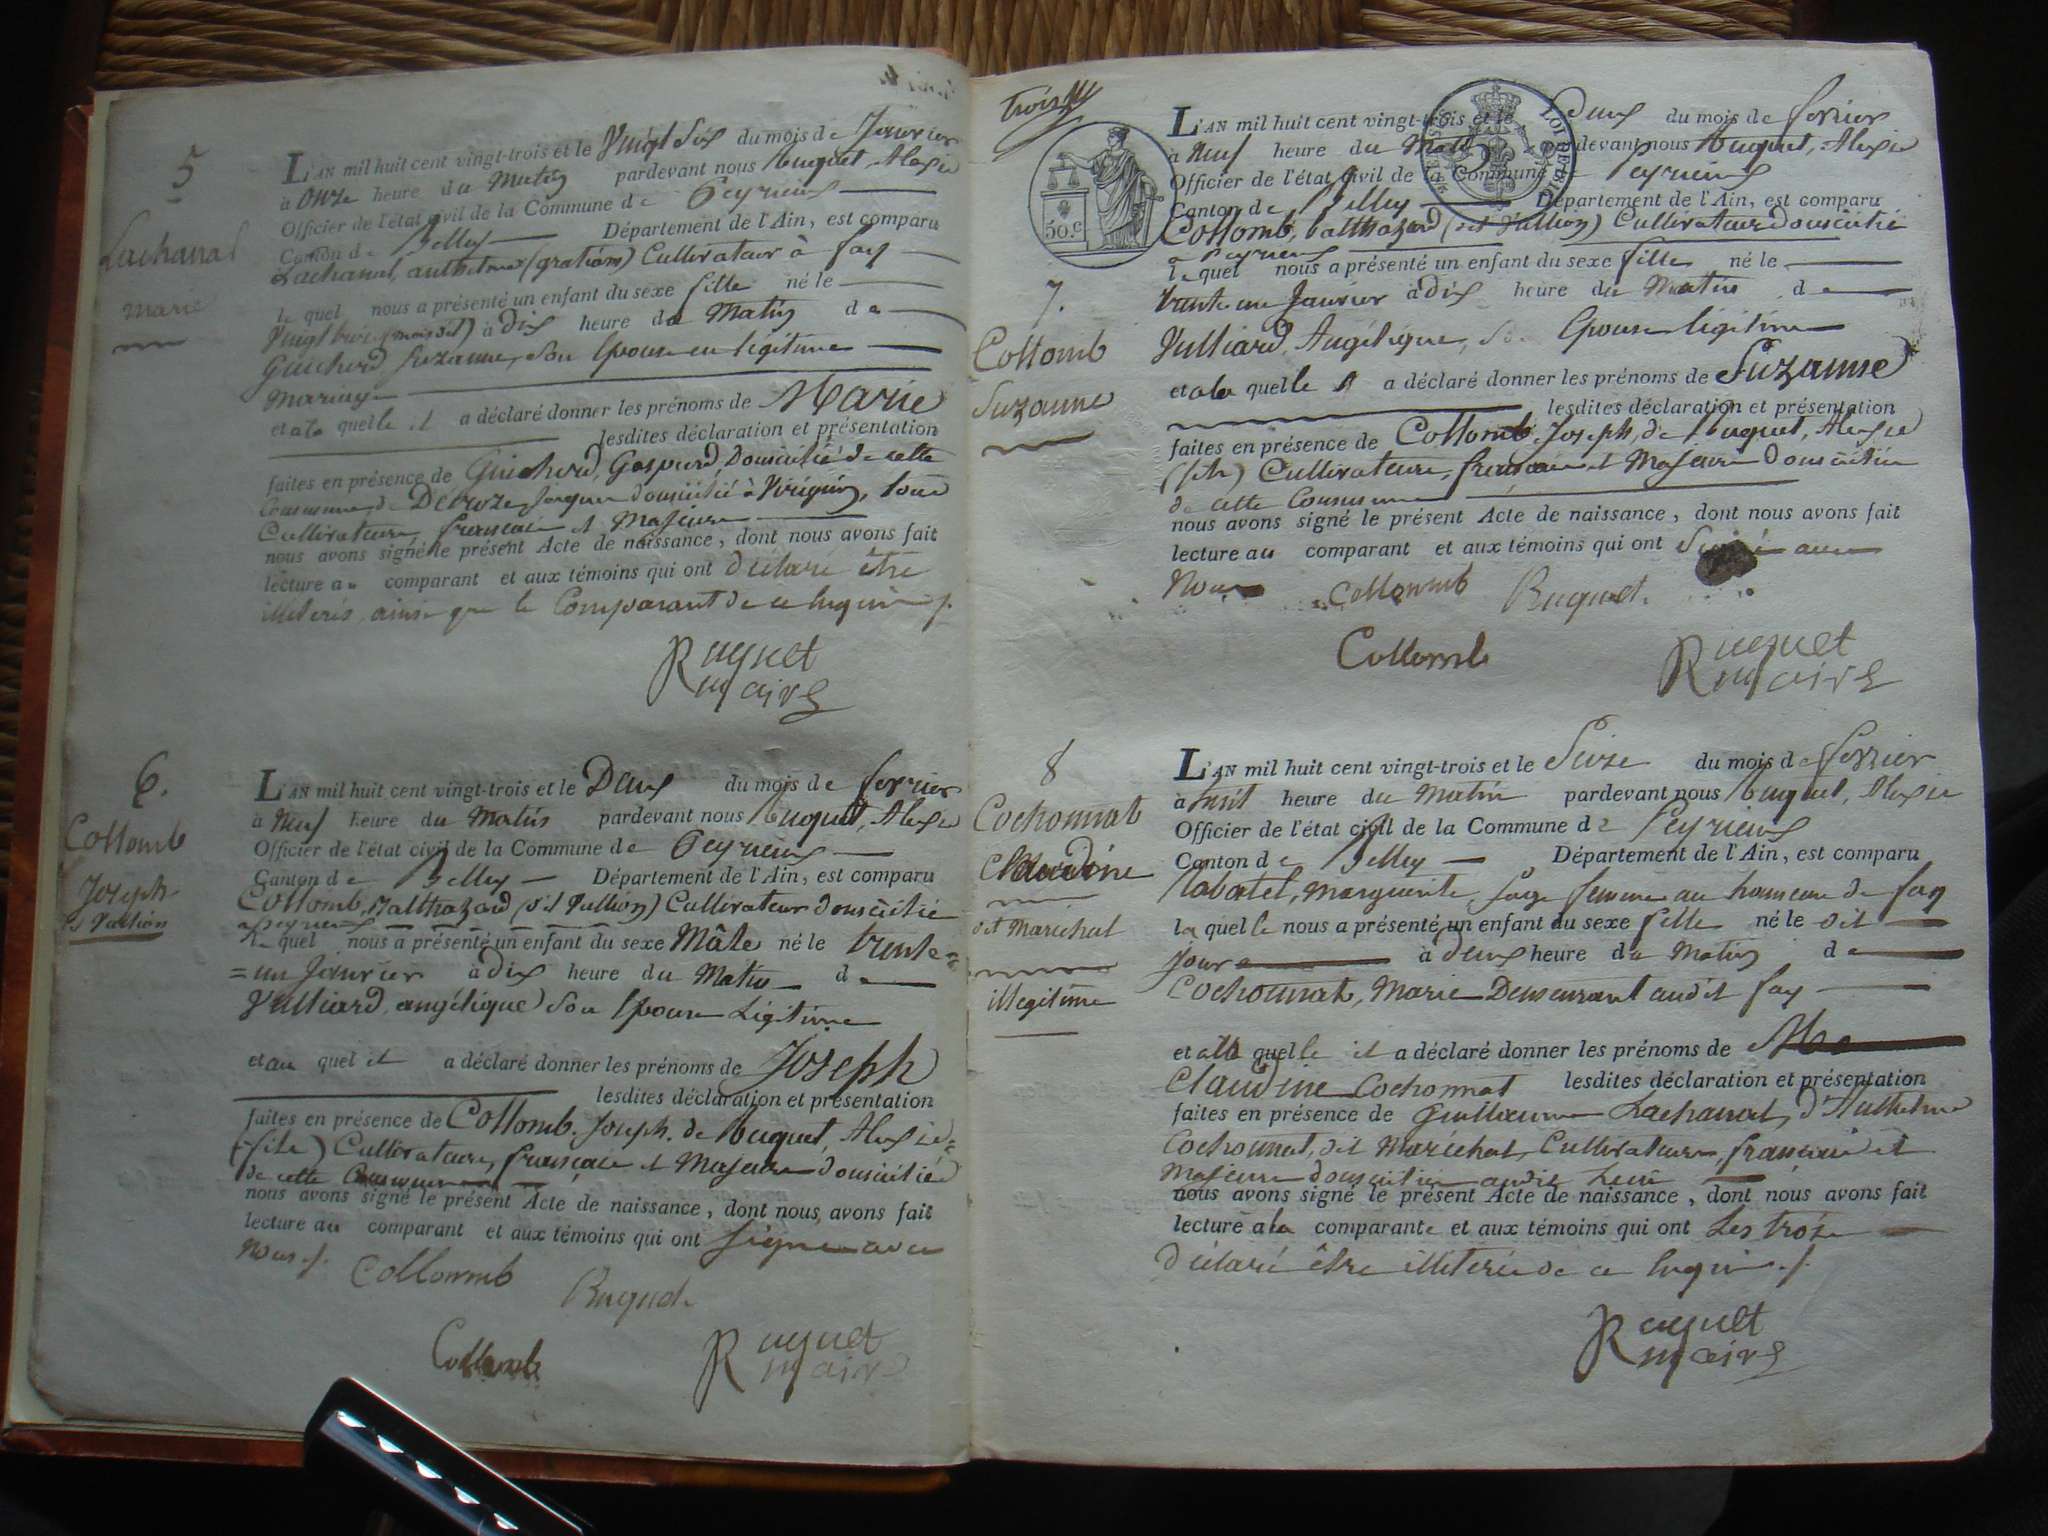 5
Lachanal
marie
L'AN mil huit cent vingt-trois et le Vingt Six du mois de Janvier
à Onze heure du Matin pardevant nous Ruquet, Alexis
Officier de l'état civil de la Commune de Peyrieux
Canton de Belley Département de l'Ain, est comparu
Lachanal, anthelme (gratian) Cultivateur à fay
le quel nous a présenté un enfant du sexe fille né le
Vingt trois (mois dit) à Dix heure du Matin de
Guichard Suzanne, son Epouse en légitime
Mariage
et a la quelle il a déclaré donner les prénoms de Marie
lesdites déclaration et présentation
faites en présence de Guichard, Gaspard Domicilié de cette
Commune, de Jaque domicilié à Virignin, tous
Cultivateurs, français et Majeurs
nous avons signé le présent Acte de naissance, dont nous avons fait
lecture au comparant et aux témoins qui ont déclaré être
illiterés, ainsi que le Comparant de ce huquis
Ruquet
maire
6.
Collomb
Joseph
d Vullion
L'AN mil huit cent vingt-trois et le Deux du mois de fevrier
à Neuf heure du Matin pardevant nous Ruquet, Alexis
Officier de l'état civil de la Commune de Peyrieux
Canton de Belley Département de l'Ain, est comparu
Collomb, Balthazard (dit Vullion) Cultivateur domicilié
a Peyrieux
le quel nous a présenté un enfant du sexe Mâle né le trente=
=un Janvier à Dix heure du Matin de
Vulliard, angélique son Epouse Légitime
et au quel il a déclaré donner les prénoms de Joseph
lesdites déclaration et présentation
faites en présence de Collomb. Joseph, de Ruquet, Alexis=
(file) Cultivateurs, français et Majeurs domiciliés
de cette Commune
nous avons signé le présent Acte de naissance, dont nous avons fait
lecture au comparant et aux témoins qui ont signé avec
Nous
Collomb
Ruquet
Collomb
Ruquet
maire
trois
50.c
LOI DE
7.
Collomb
Suzanne
L'AN mil huit cent vingt-trois et le Deux du mois de fevrier
à Neuf heure du Matin pardevant nous Ruquet, Alexis
Officier de l'état civil de la Commune de Peyrieux
Canton de Belley Département de l'Ain, est comparu
Collomb, balthazard (dit Vullion) Cultivateur domicilié
a Peyrieux
le quel nous a présenté un enfant du sexe fille né le
trente un Janvier à dix heure du Matin de
Vulliard, Angélique, Epouse légitime
et a la quelle il a déclaré donner les prénoms de Suzanne
lesdites déclaration et présentation
faites en présence de Collomb Joseph, de Ruquet, Alexis
Cultivateurs, français et Majeurs domiciliés
de cette Commune
nous avons signé le présent Acte de naissance, dont nous avons fait
lecture au comparant et aux témoins qui ont Signé avec
Nous
Collomb
Ruquet
Collomb
Ruquet
maire
8
Cochonnat
Claudine
dit Maréchal
illegitime
L'AN mil huit cent vingt-trois et le Seize du mois de fevrier
à huit heure du Matin pardevant nous Ruquet, Alexis
Officier de l'état civil de la Commune de Peyrieux
Canton de Belley Département de l'Ain, est comparu
Rabatel, Marguerite, Sage femme au hameau de fay
la quelle nous a présenté un enfant du sexe fille né le dit
jour à deux heure du Matin de
Cochonnat, Marie Demeurant audit fay
et a la quelle il a déclaré donner les prénoms de
Claudine Cochonnat lesdites déclaration et présentation
faites en présence de Guillaume Lachanal, d'Anthelme
Cochonnat, dit Maréchal, Cultivateurs, français et
Majeurs domiciliés audit Lieu
nous avons signé le présent Acte de naissance, dont nous avons fait
lecture a la comparante et aux témoins qui ont Les trois
déclaré être illiterés de ce
Ruquet
maire